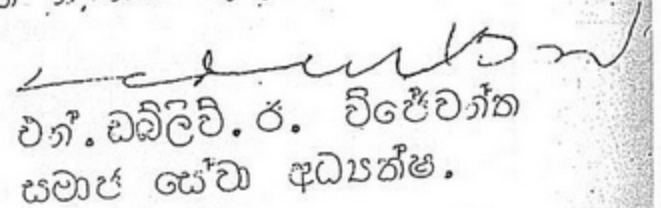 එන්. ඩබ්ලිව්. ර. විජේවන්ත
සමාජ සේවා අධ්‍යක්ෂ.